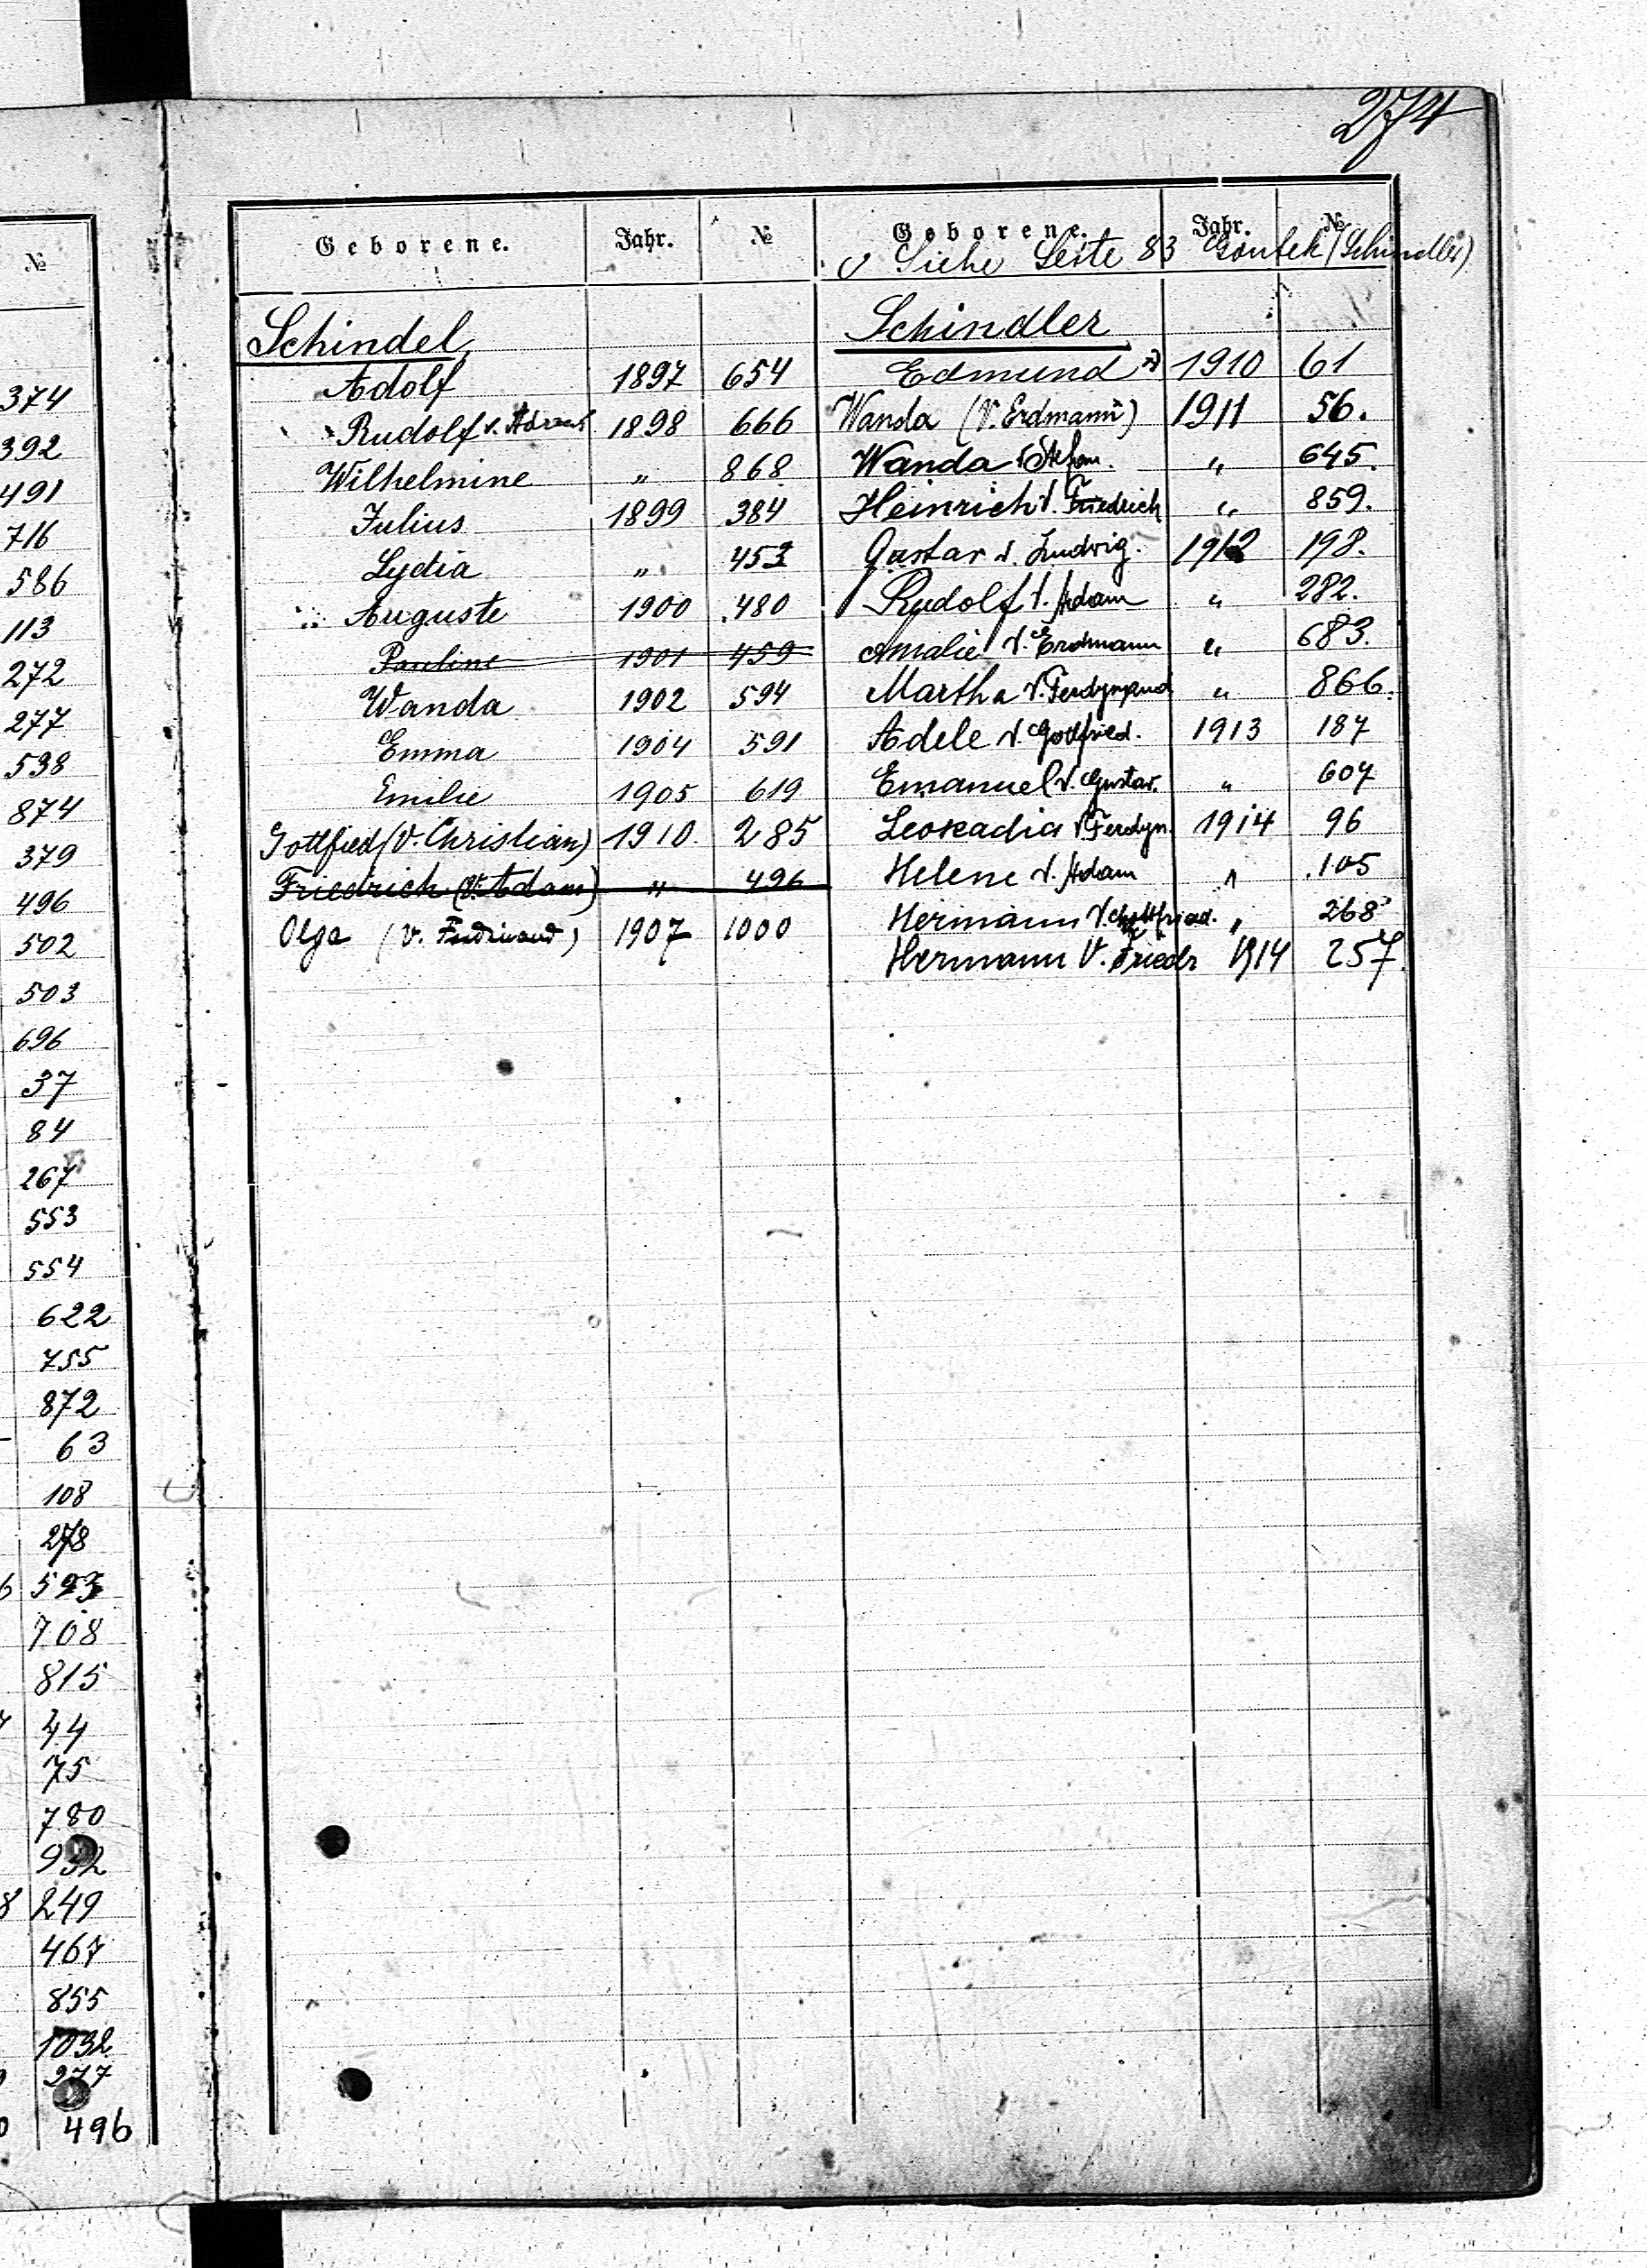 274
№
374
392
491
716
586
113
272
277
538
874
379
496
502
503
696
37
84
267
553
554
622
755
872
63
108
278
6 593
708
815
44
75
780
932
8 249
467
855
1032
277
496
Geborene. Jahr. №
Schindel
Adolf 1897 654
Rudolf v. 1898 666
Wilhelmine " 868
Julius 1899 384
Lydia " 453
Auguste 1900 480
Pauline 1901 459
Wanda 1902 594
Emma 1904 591
Emilie 1905 619
Gottfied (V. Christian) 1910. 285
Friedrich (V. Adam) " 496
Olga (V. Ferdinand) 1907 1000
Geborene. Jahr. №
Siehe Seite 83 Gontek (Schindler)
Schindler
Edmund 1910 61
Wanda (V. Erdmann) 1911 56.
Wanda V. Stefan. " 645.
Heinrich V. Friedrich " 859.
Gustav v. Ludwig. 1912 198.
Rudolf V. Adam " 282.
Amalie V. Erdmann " 683.
Martha V. Ferdynand " 866.
Adele V. Gottfried. 1913 187
Emanuel V. Gustav. " 607
Leokadia V. Ferdyn. 1914 96
Helene V. Adam " 105
Hermann V. Gottfried. " 268
Hermann V. Friedr 1914 257.